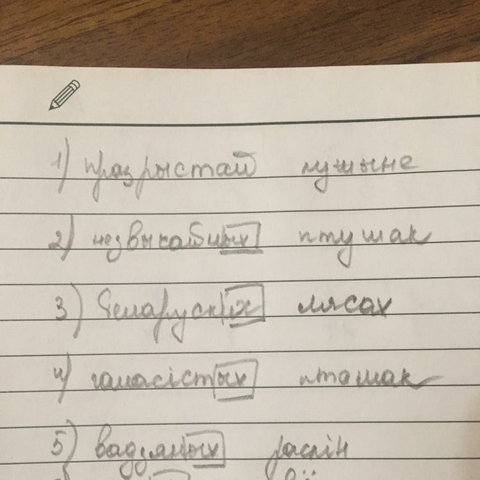 1) празрыстай лушыне
2) незвычайных птушак
3) беларускіх лясах
4) галасістых пташак
5) водзяных раслін